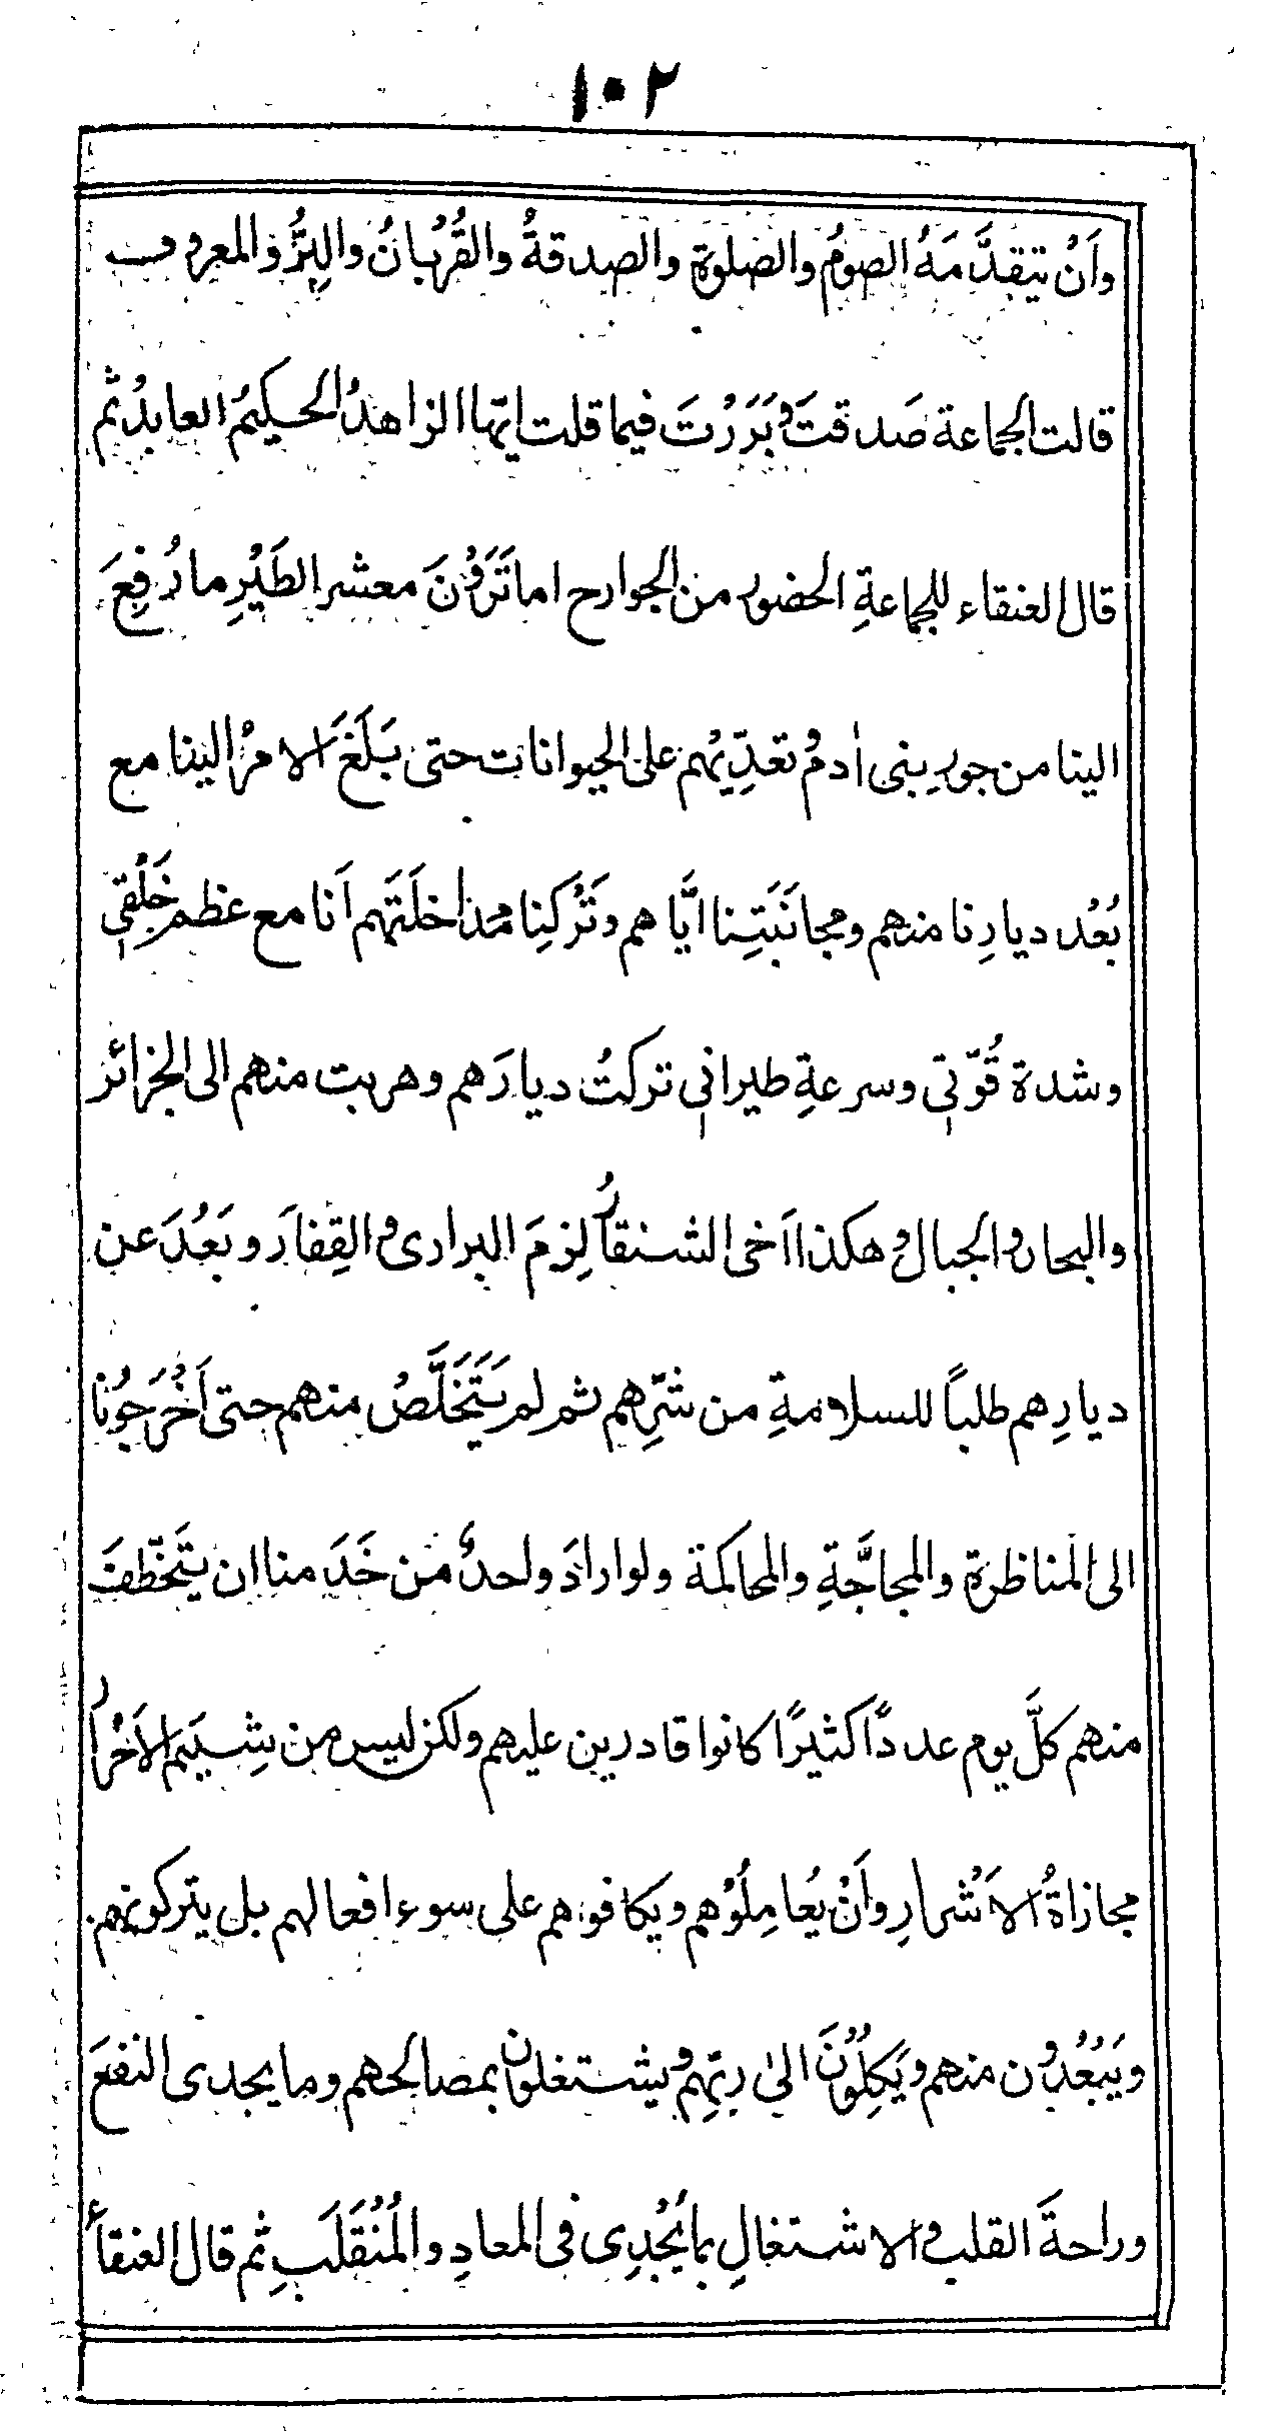 ١٠٢
واَنْ تيقدَّمَهُ الصومُ والصلوة والصدقةُ والقُرُبانُ والبِرُّ والمعروف
قالت الجماعة صَدقتَ وبَرَرْتَ فيما قلت ايّها الزاهدُ الحكيمُ العابدُ ثم
قال العنقاء للجماعةِ الحضور من الجوارح اما تَرَوْنَ معشر الطَيْرِ ما دُفِعَ
الينا من جورِ بنى اٰدم وتعدِّيْهم على الحيوانات حتى بَلَغَ الامرُ الينا مع
بُعْد ديارِنا منهم ومجانَبَتِنا ايَّاهم وتَرْكِنا مداخلَتَهم اَنا مع عظم خَلْقى
وشدة قُوّتى وسرعةِ طيرانى تركتُ ديارَهم وهربت منهم الى الجزائر
والبحار والجبال وهكذا اَخى الشنقارُ لزمَ البرارى والقِفارَ وبَعُدَ عن
ديارِهم طلباً للسلامةِ من شرِّهم ثم لم يَتَخَلَّصْ منهم حتى اَخْرَجُونا
الى المناظرة والمحاجَّةِ والمحاكمة ولو ارادَ واحدٌ من خَدَمنا ان يتَخَّطفَ
منهم كلَّ يوم عددًا كثيرًا كانوا قادرين عليهم ولكن ليس من شِيَم الاَحْرار
مجازاةُ الاَشْرارِ واَنْ يُعامِلُوْهم ويكافوهم على سوء افعالهم بل يتركونهم
ويَبْعُدُون منهم ويَكِلُوْنَ الىٰ ربّهِم ويشتغلون بمصالحهم وما يجدى النفعَ
وراحةَ القلب والاشتغالِ بما يُجْدِى فى المعادِ والمُنْقَلَبِ ثم قال العنقاءُ